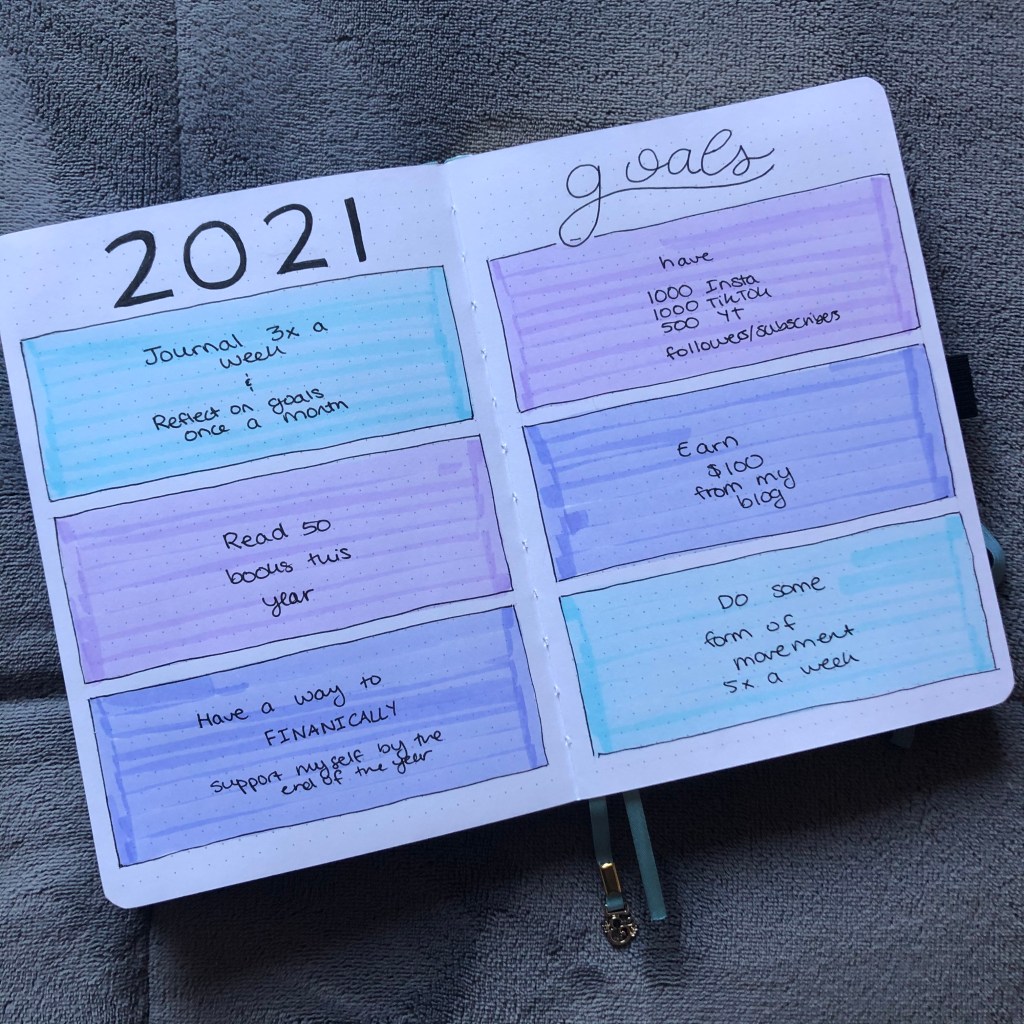 2021
Journal 3x a
week
&
Reflect on goals
once a month
Read 50
books this
year
Have a way to
FINANICALLY
support myself by the
end of the year
goals
have
1000 Insta
1000 TikTok
500 YT
followers/subscribers
Earn
$100
from my
blog
Do some
form of
movement
5x a week